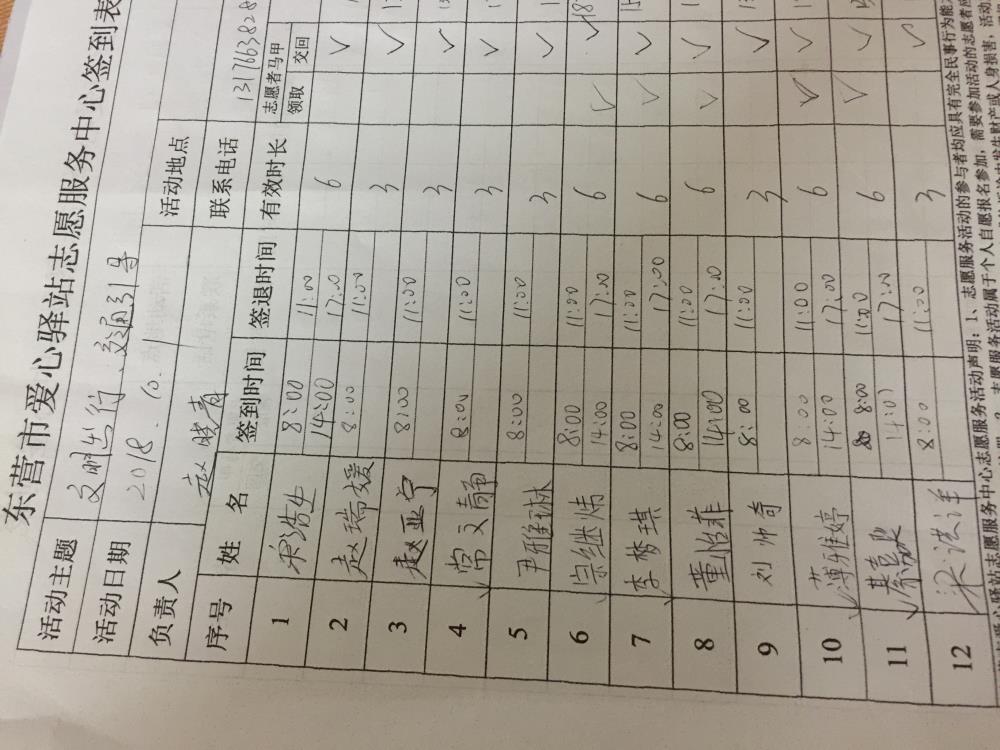 东营市爱心驿站志愿服务中心签到表
活动主题 文明出行、交通引导
活动日期 2018.10.1 活动地点
负责人 赵晓青 联系电话 1317663828
序号 姓名 签到时间 签退时间 有效时长 志愿者马甲 领取 交回
1 宋浩生 8:00 11:00 6
14:00 17:00
2 赵瑞媛 8:00 11:00 3
3 赵亚宁 8:00 11:00 3
4 常文静 8:00 11:00 3
5 尹雅琳 8:00 11:00 3
6 宗继炜 8:00 11:00 6
14:00 17:00
7 李梦琪 8:00 11:00 6
14:00 17:00
8 董怡菲 8:00 11:00 6
14:00 17:00
9 刘帅奇 8:00 11:00 3
10 薄雅婷 8:00 11:00 6
14:00 17:00
11 綦嘉泉 8:00 11:00 6
14:00 17:00
12 洪洋 8:00 11:00 3
驿站志愿服务中心志愿服务活动声明：1、志愿服务活动的参与者均应具有完全民事行为能
志愿服务活动属于个人自愿报名参加，需要参加活动的志愿者应
发生财产或人身损害，活动